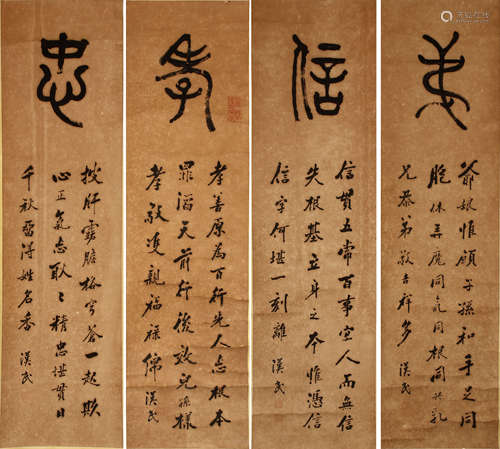 弟
爺娘惟願子孫和手足同
胞休弄魔同氣同根同共乳
兄恭弟敬吉祥多 漢民
信
信貫五常百事宜人而無信
失根基立身之本惟憑信
信字何堪一刻離 漢民
孝
孝善原為百行先人忘根本
罪滔天前行後效兒孫樣
孝敬雙親福祿綿 漢民
忠
披肝露膽格穹蒼一起欺
心正氣亡耿〻精忠堪貫日
千秋留得姓名香 漢民